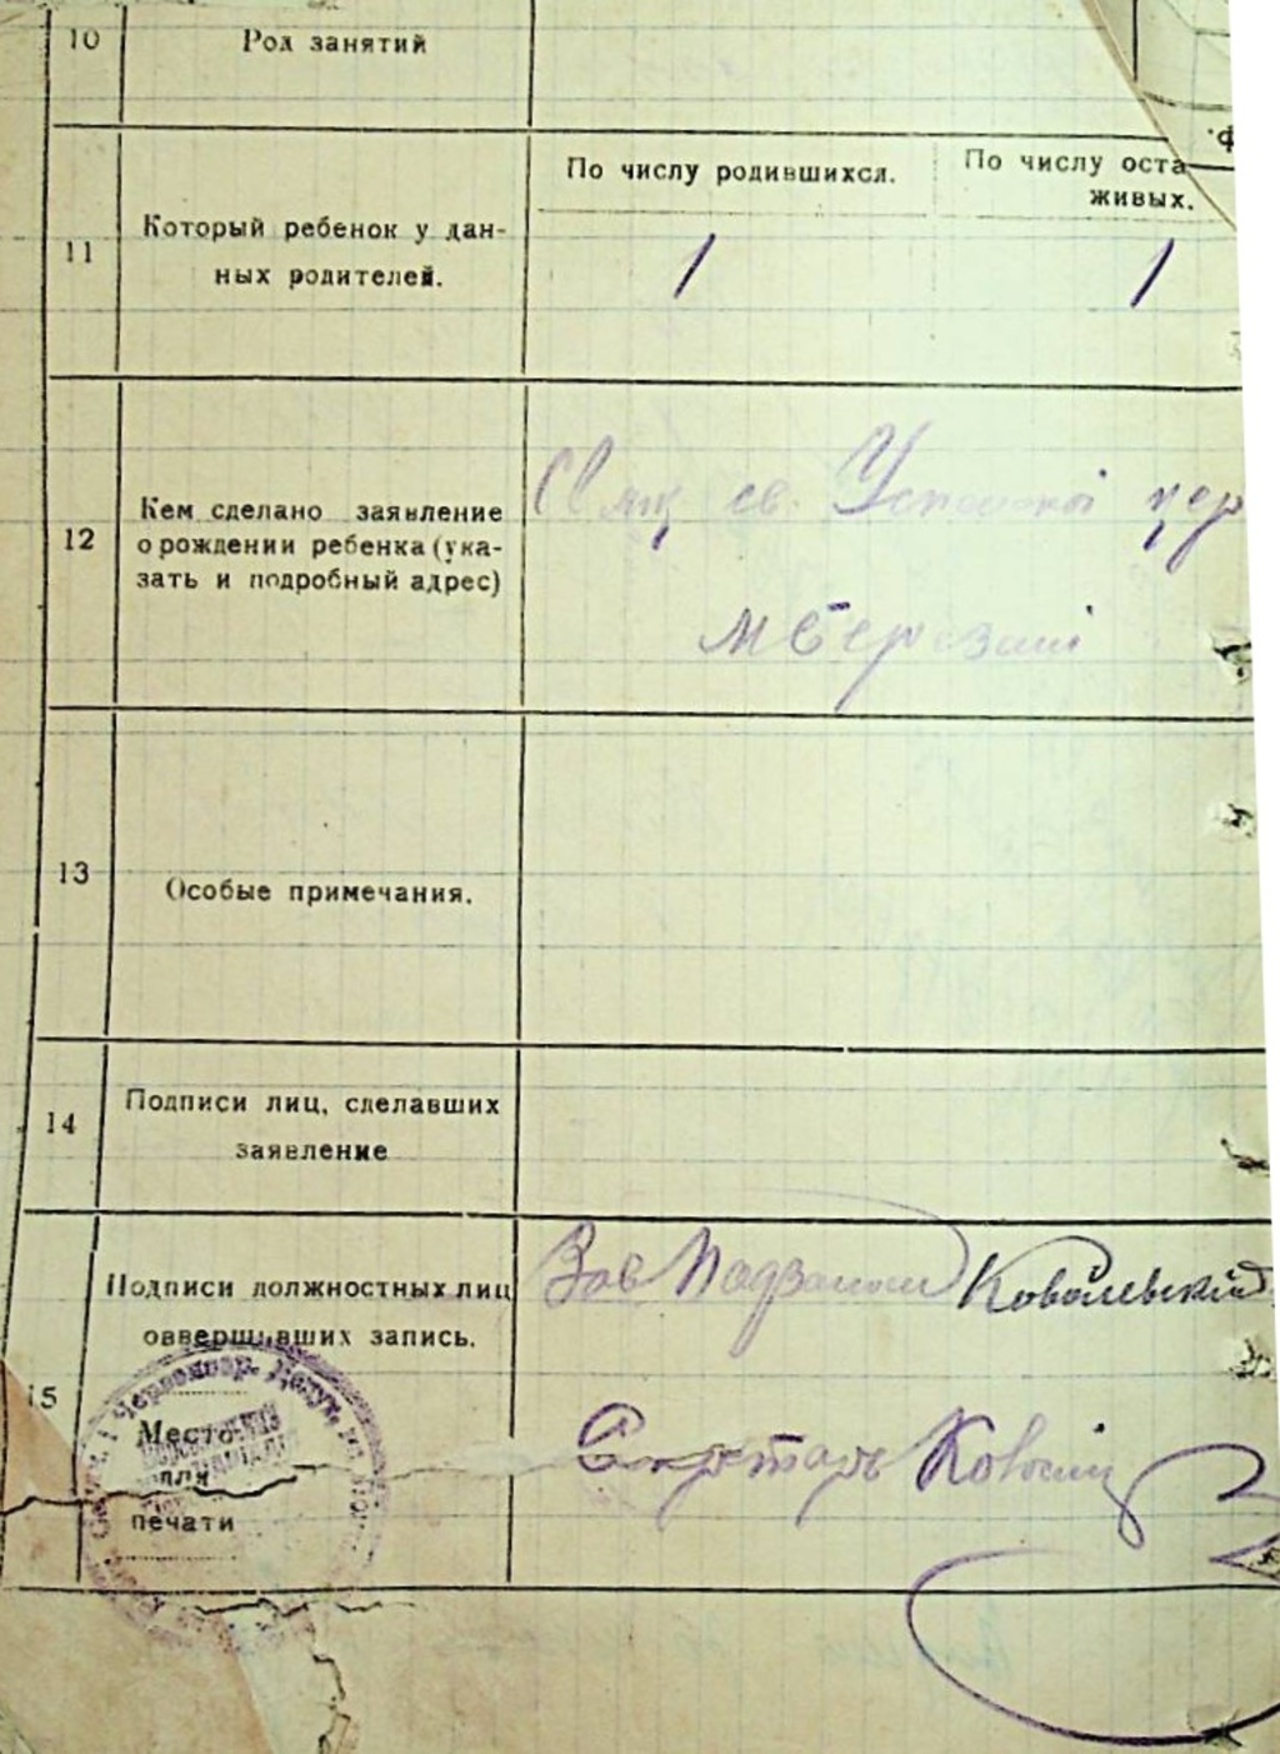 10
Род занятий
11
Который ребенок у дан-
ных родителей.
По числу родившихся.
По числу оста
живых.
1
1
12
Кем сделано заявление
о рождении ребенка (ука-
зать и подробный адрес)
св. Успенской цер
м Березані
13
Особые примечания.
14
Подписи лиц, сделавших
заявление
15
Подписи должностных лиц
овверш вших запись.
Зав Ковалевский
Секретарь
Место
для
печати
Червоноар. Депут.